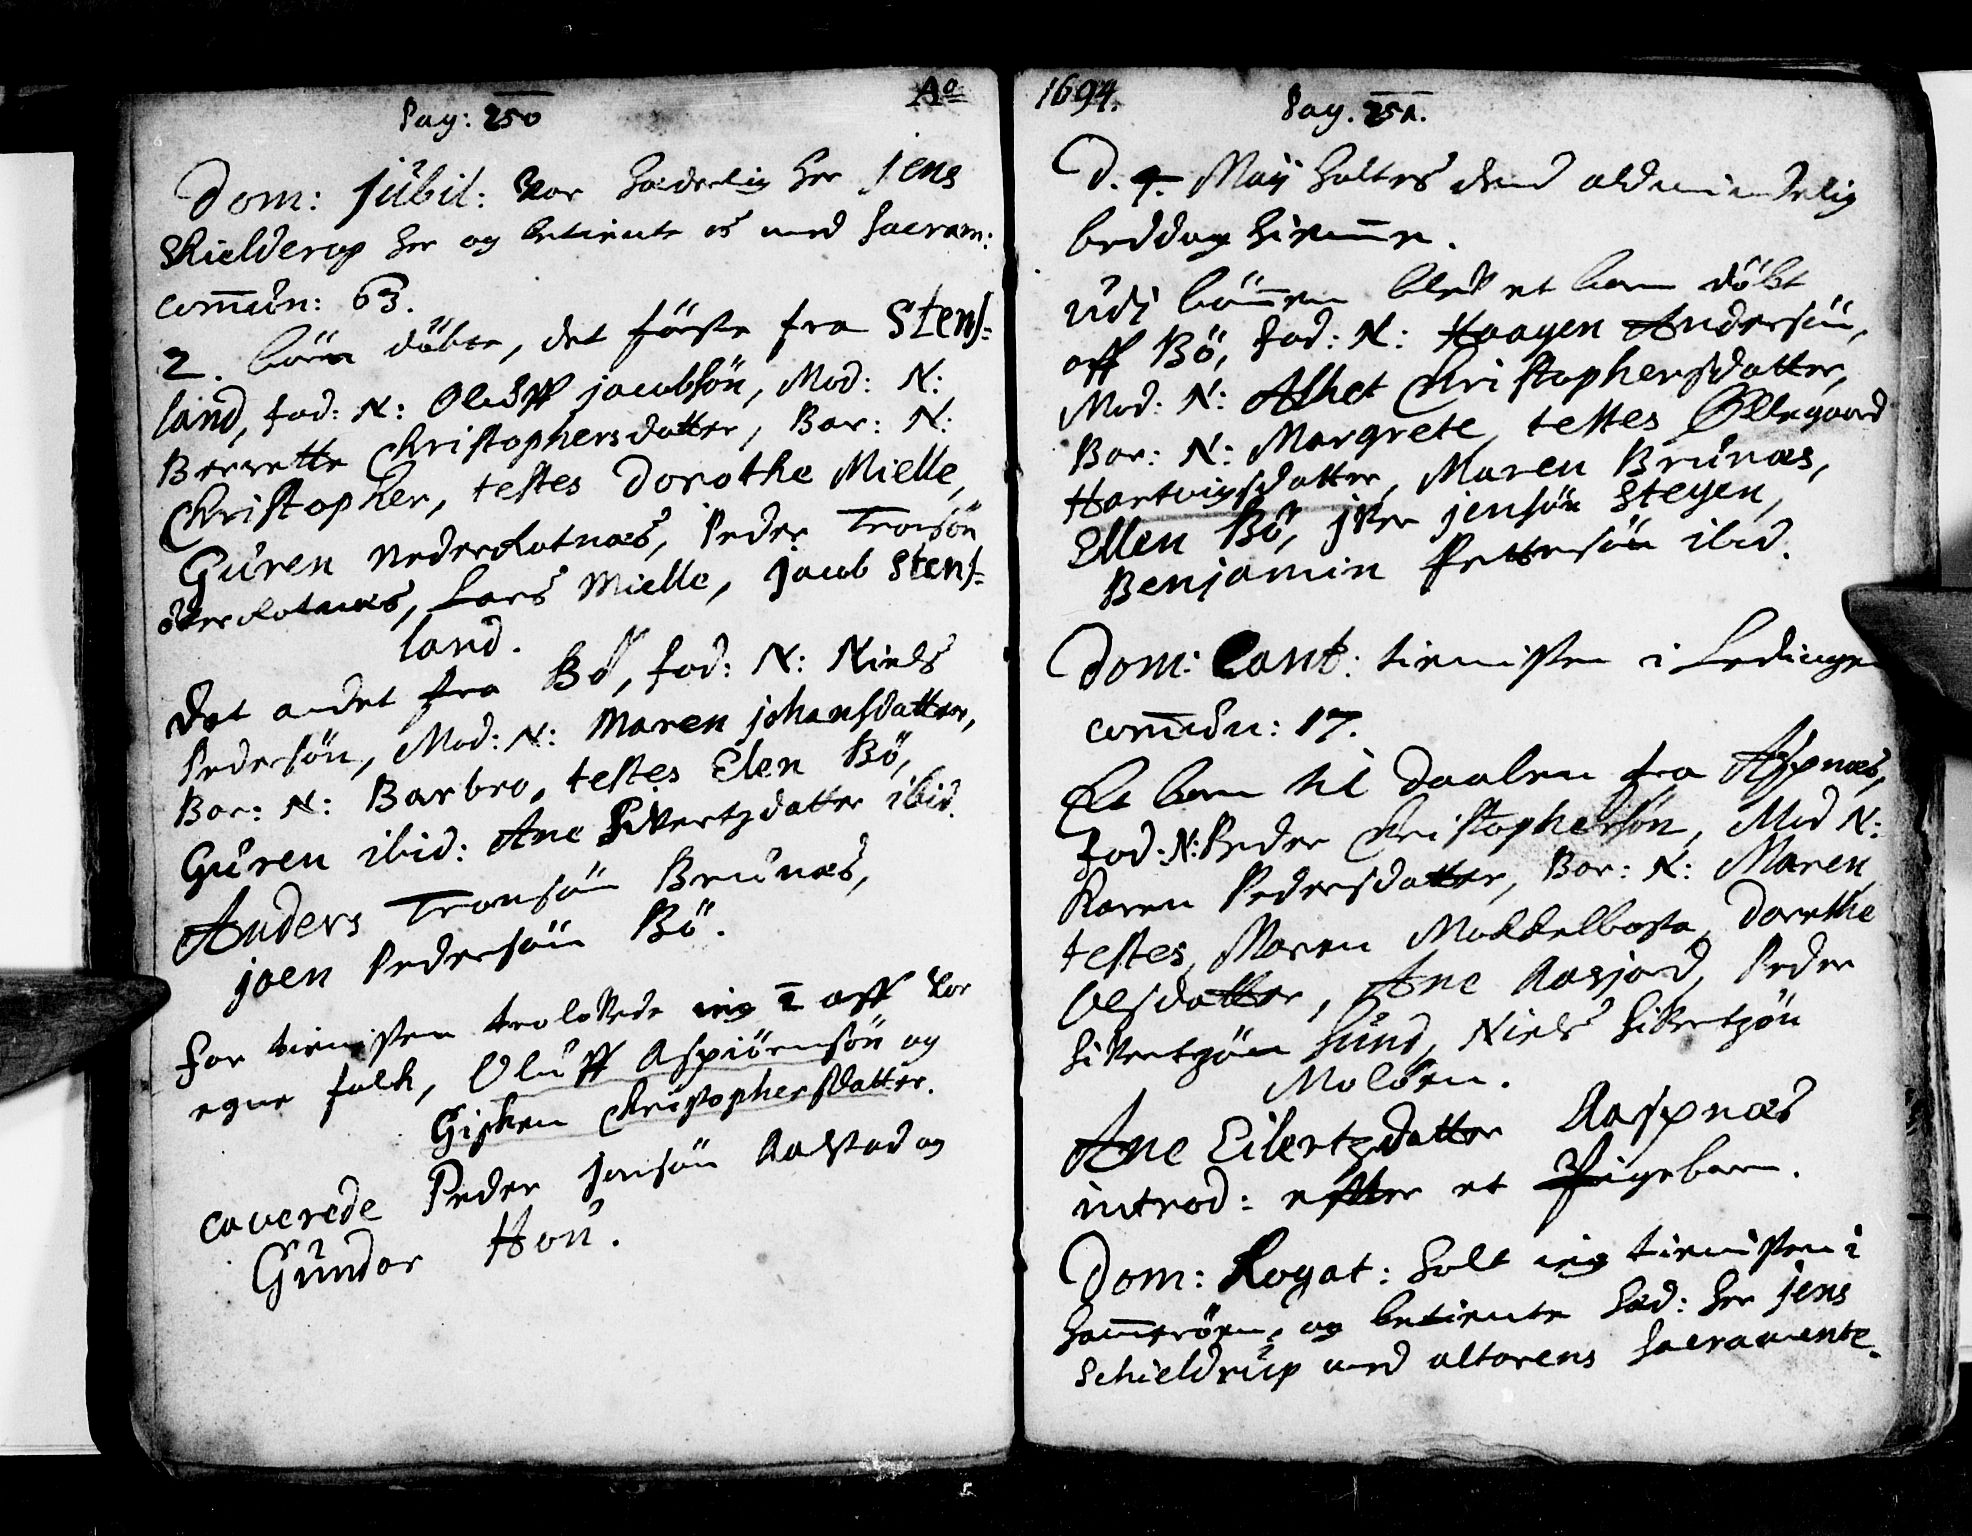 Pag: 250 Ao
Dom: Jübil: var hæderlig her Jens
Skielderop her og betiente os med sacram:
com̅ün: 63.
2. börn döbte, det förste fra Stens=
land, fad: N: Oluff Jacobsön, Mod: N:
Berrette Christophersdatter, Bar: N:
Christopher, testes Dorothe Mielle,
Güren Nederkotnæs, Peder Tronsön
överkotnæs, Lars Mielle, Jacob Stens=
land.
Det andet fra Bö, fad: N: Niels
Pedersön, Mod: N: Maren Johansdatter,
Bar: N: Barbro, testes Elen Bö,
Güren ibid: Ane Sivertzdatter ibid.
Anders Tronsön Brunæs,
Joen Pedersön Bö.
För tienisten trolovede ieg 2 aff vor
egne folk, Oluff Aspiörnsön og
Gisken Christophersdatter.
caverede Peder Jonsön Aalstad og
Gündar Hou.
1694. Pag. 251.
D. 4. Maij holtes dend aldmindelig
beddag hiem̅e.
üdj bön̅en blev et barn döbt
aff Bö, fad: N: Haagen Andersön,
Mod: N: Alhet Christophersdatter,
Bar: N: Margrete, testes Ollegaard
Hartvigsdatter, Maren Brünæs,
Ellen Bö, Iver Jensön Steyen,
Benjamin Pettersön ibid.
Dom: Cant: tienisten i Lødingen
com̅ün: 17.
Et barn til daaben fra Aspnæs,
fad: N: Peder Christophersön, Mod N:
Karen Pedersdatter, Bar: N: Maren,
testes, Maren Mokkelbosta, Dorethe
Olsdatter, Ane Aasjord, Peder
Sivertzön Sünd, Niels Sivertzön
Molöen.
Ane Eilertzdatter Aaspnæs
introd: efter et Pigebarn.
Dom: Rogat: holt ieg tienisten i
Ham̅eröen, og betiente hæd: her Jens
Schieldrüp med altarens Sacramente.